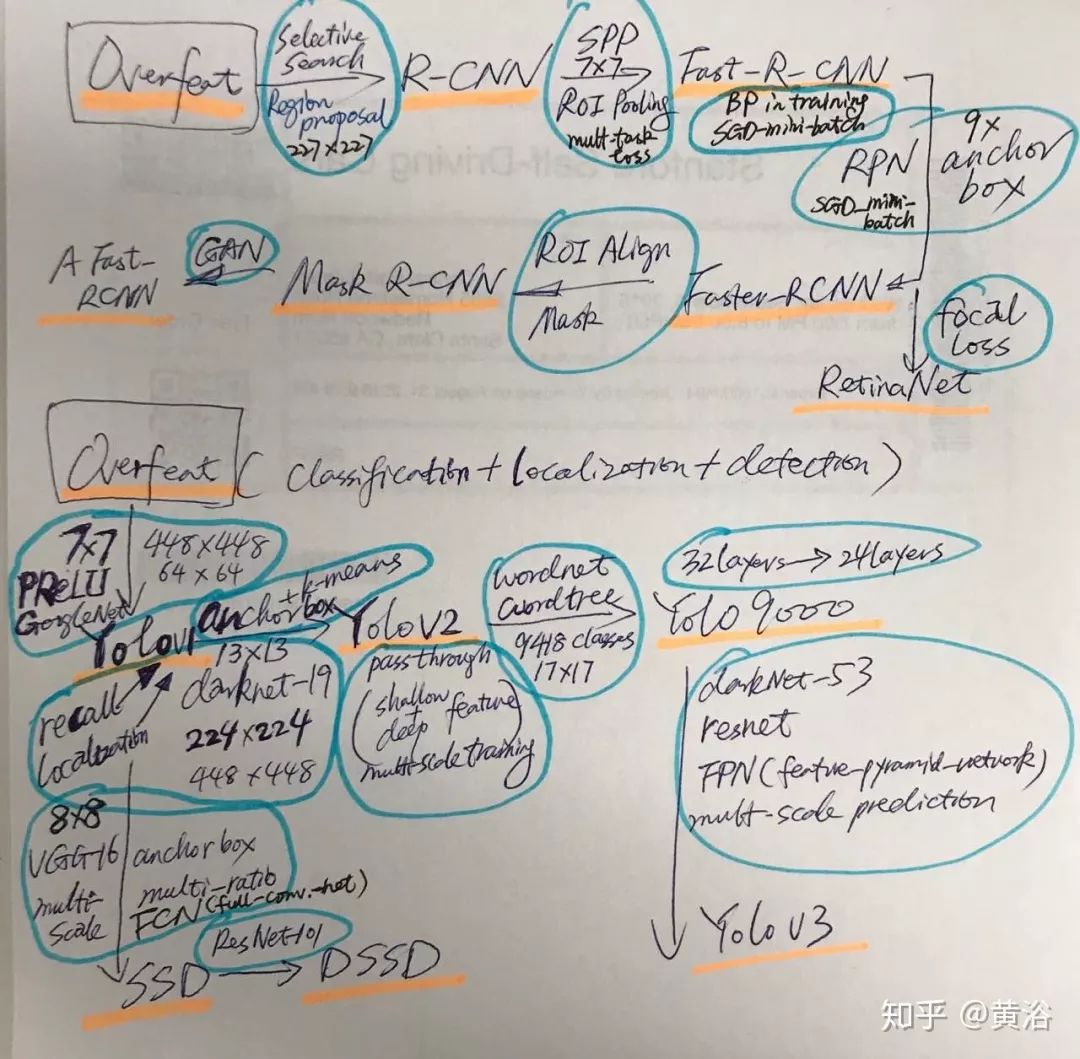 Overfeat
Selective
Search
Region
proposal
227×227
R-CNN
SPP
7×7
ROI Pooling
mult-task
loss
Fast-R-CNN
BP in training
SGD-mini-batch
RPN
SGD_mini-
batch
9x
anchor
box
A Fast-
RCNN
GAN
Mask R-CNN
ROI Align
Mask
Faster-RCNN
focal
Loss
RetinaNet
Overfeat ( classification + localization + detection )
7×7
PReLU
GoogleNet
448×448
64×64
Yolov1
anchor box
+ k-means
13×13
Yolo v2
wordnet
wordtree
9418 classes
17×17
32layers → 24layers
Yolo 9000
recall
Localization
darknet-19
224×224
448×448
passthrough
(shallow
+
deep feature)
multi-scale training
darkNet-53
resnet
FPN (feature-pyramid-network)
mult-scale prediction
8×8
VGG-16
multi-
scale
anchor box
multi-ratio
FCN (full-conv.-net)
ResNet-101
SSD → DSSD
Yolo v3
Stanford Self-Driving Ca
知乎 @黄浴